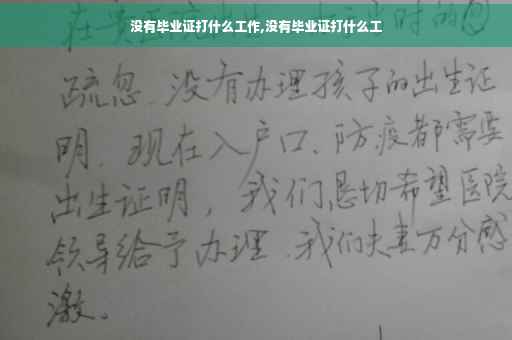 没有毕业证打什么工作,没有毕业证打什么工
时的
疏忽、没有办理孩子的出生证
明、现在入户口、防疫都需要
出生证明，我们恳切希望医院
领导给予办理、我们夫妻万分感
激。